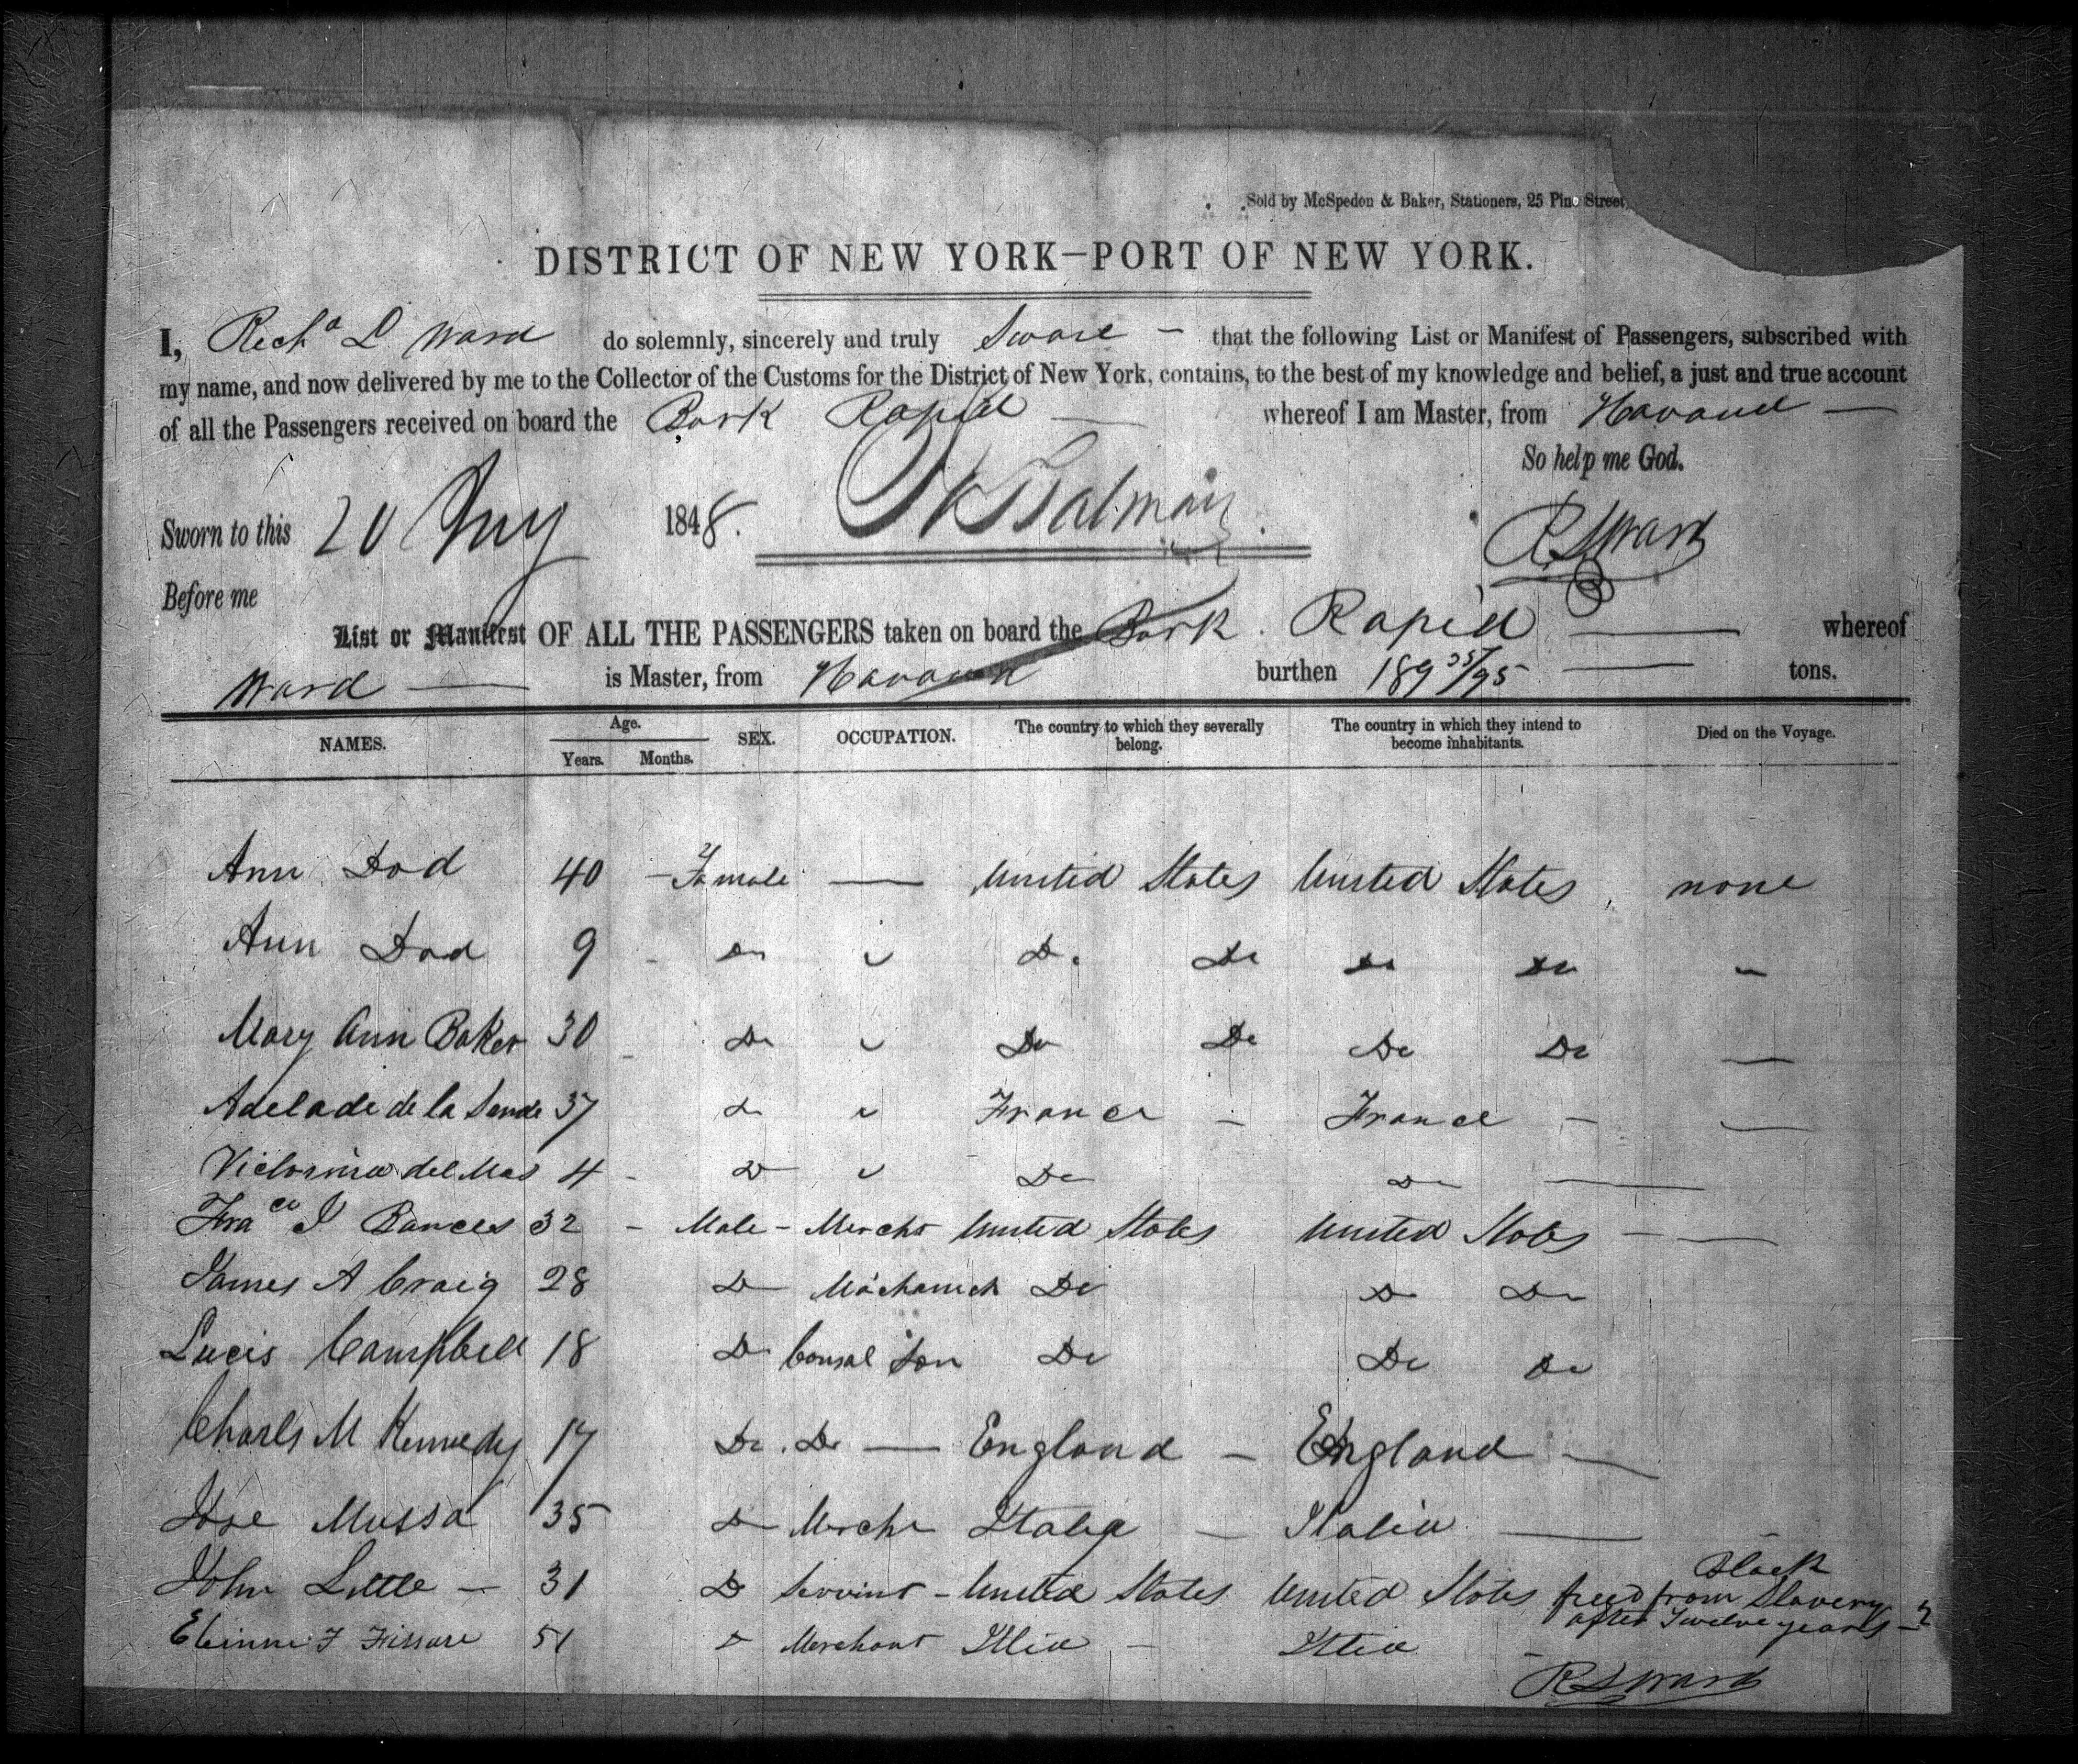 Sold by McSpedon & Baker, Stationers, 25 Pine Street
DISTRICT OF NEW YORK—PORT OF NEW YORK.
I, Rich^d L Ward do solemnly, sincerely and truly Sware — that the following List or Manifest of Passengers, subscribed with
my name, and now delivered by me to the Collector of the Customs for the District of New York, contains, to the best of my knowledge and belief, a just and true account
of all the Passengers received on board the Bark Rapid — whereof I am Master, from Havana —
So help me God.
Sworn to this 20 1848.
R L Ward
Before me
List or Manifest OF ALL THE PASSENGERS taken on board the Bark Rapid — whereof
Ward — is Master, from Havana burthen 189 35/95 — tons.
NAMES. Age. Years. Months. SEX. OCCUPATION. The country to which they severally belong. The country in which they intend to become inhabitants. Died on the Voyage.
Ann Dod 40 — Female — United States United States none
Ann Dod 9 - Do " Do. Do Do Do "
Mary Ann Baker 30 - Do " Do Do Do Do —
Adelade de la 37 do " France — France — —
Victorina del Mas 4 - Do " Do Do —
Fra^co J Bances 32 - Male - Mercht United States United States — —
James A Craig 28 Do Mechanick Do Do Do
Lucis Campbell 18 Do Consul Son Do Do Do
Charls M Kennedy 17 Do. Do — England — England —
Jose Mussa 35 Do Mercht Italia — Italia —
John Little — 31 Do Servint - United States United States Black freed from Slavery after Twelve years —
F 51 Do Merchant Itlia — Itlia —
R L Ward